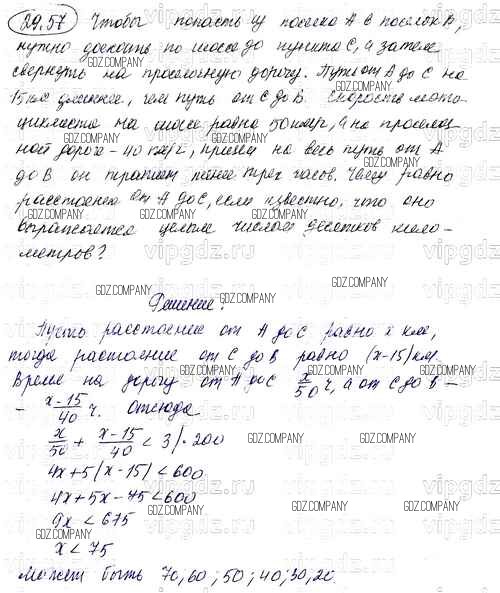 29.57 Чтобы попасть из поселка А в поселок В,
нужно доехать по шоссе до пункта С, а затем
свернуть на проселочную дорогу. Путь от А до С на
15 км длиннее, чем путь от С до В. Скорость мото-
циклиста на шоссе равна 50 км/ч, а на просёлоч-
ной дороге - 40 км/ч, причем на весь путь от А
до В он тратит менее трех часов. Чему равно
расстояние от А до С, если известно, что оно
выражается целым числом десятков кило-
метров?
Решение:
Пусть расстояние от А до С равно x км,
тогда растояние от С до В равно (x-15) км
Время на дорогу от А до С x/50 ч, а от С до В -
- x-15/40 ч. Отсюда
x/50 + x-15/40 < 3 |·200
4x+5(x-15)<600
4x+5x-75<600
9x<675
x<75
Может быть 70, 60; 50; 40; 30, 20